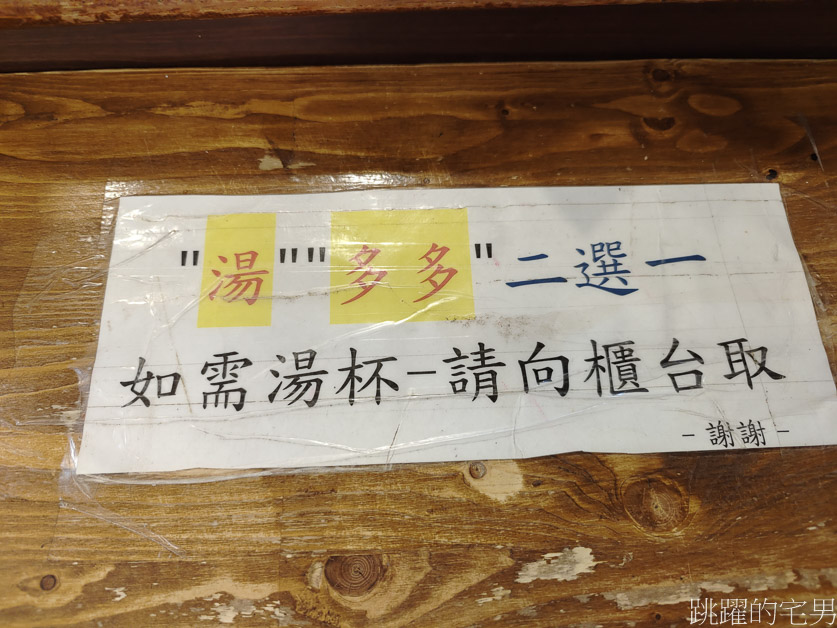 "湯""多多"二選一
如需湯杯-請向櫃台取
- 謝謝 -
跳躍的宅男